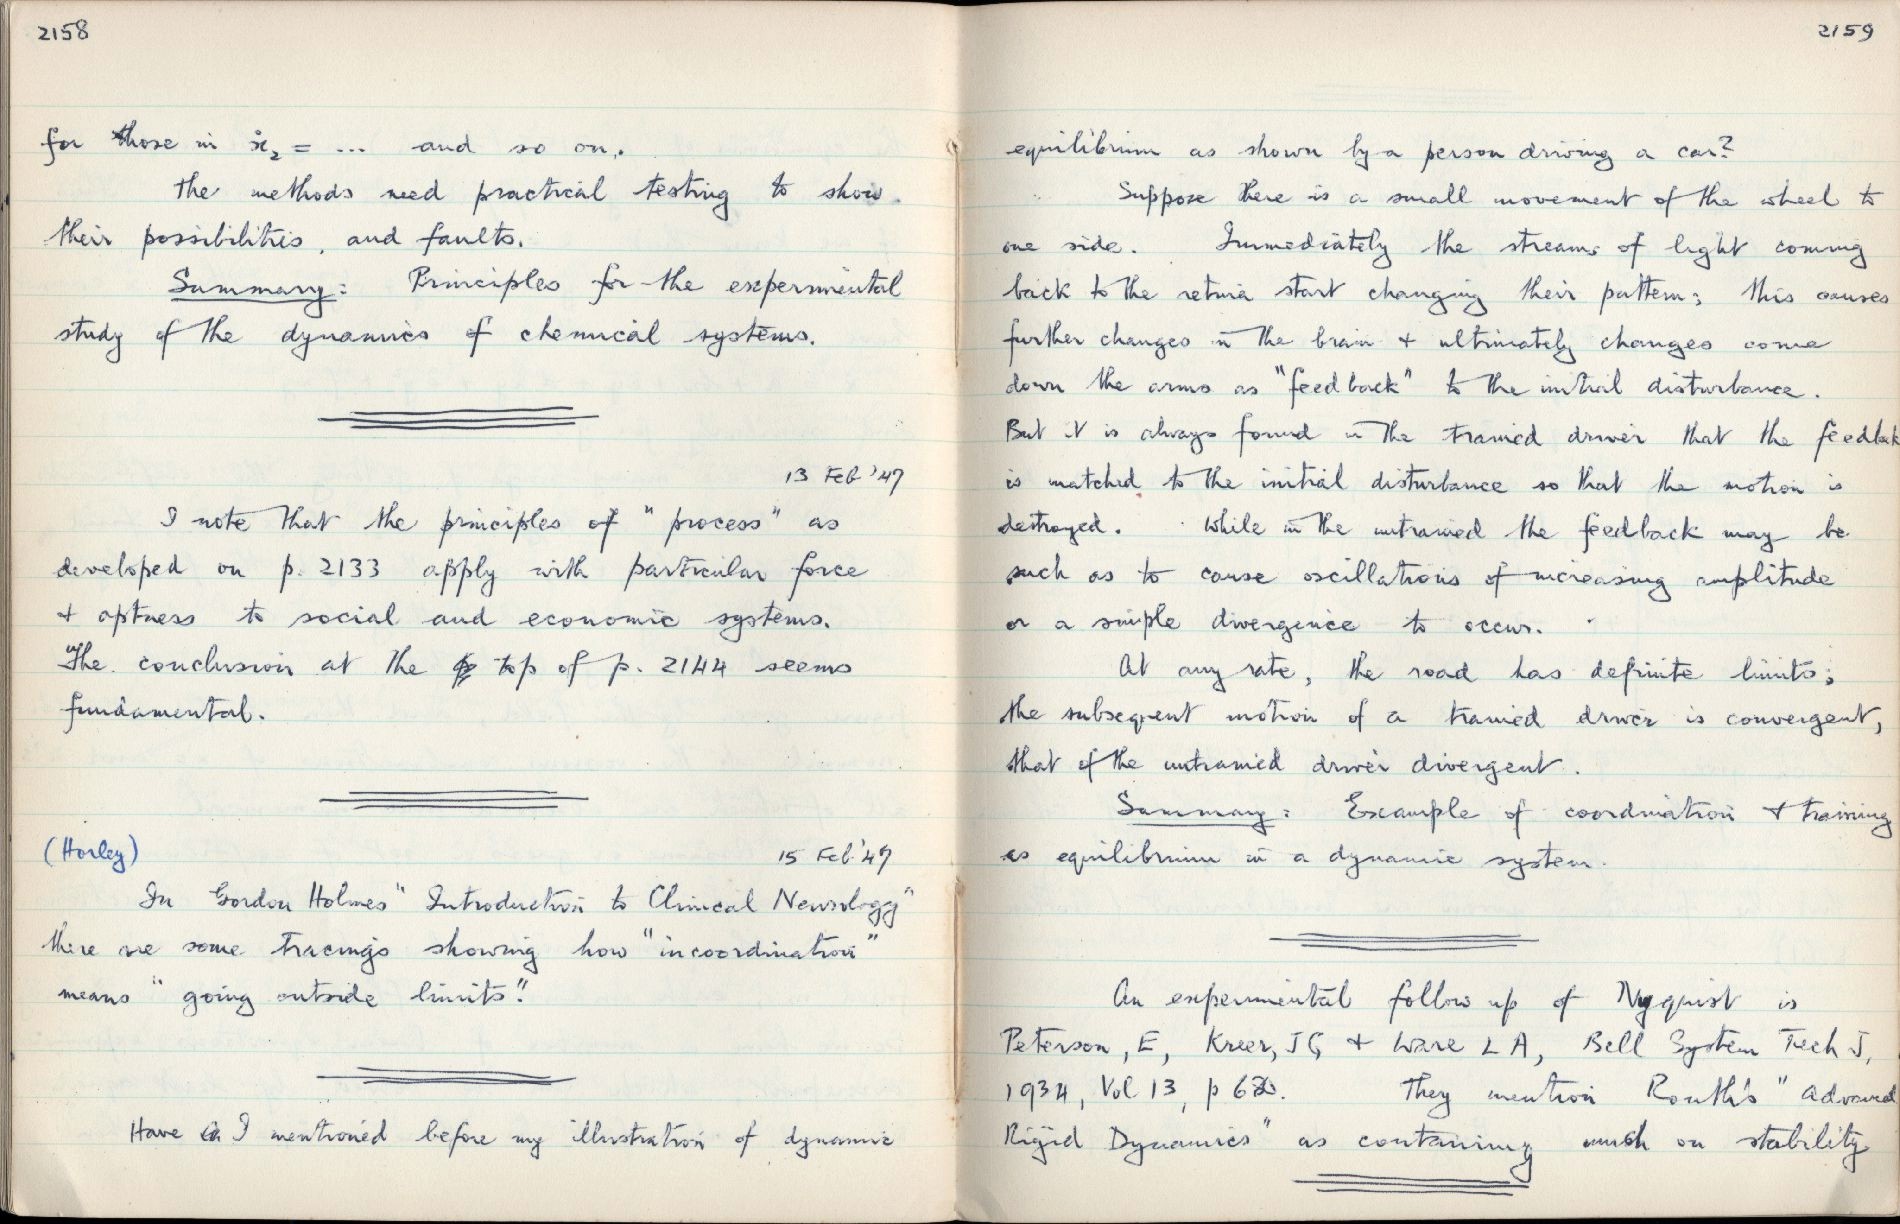 2158
for those in ẋ₂ = ... and so on.
The methods need practical testing to show
their possibilities, and faults.
Summary: Principles for the experimental
study of the dynamics of chemical systems.
13 Feb '47
I note that the principles of "process" as
developed on p. 2133 apply with particular force
& aptness to social and economic systems.
The conclusion at the top of p. 2144 seems
fundamental.
(Horley)
15 Feb '47
In Gordon Holmes' "Introduction to Clinical Neurology"
there are some tracings showing how "incoordination"
means "going outside limits".
Have I mentioned before my illustration of dynamic
2159
equilibrium as shown by a person driving a car?
Suppose there is a small movement of the wheel to
one side. Immediately the streams of light coming
back to the retina start changing their pattern; this causes
further changes in the brain & ultimately changes come
down the arms as "feedback" to the initial disturbance.
But it is always found in the trained driver that the feedback
is matched to the initial disturbance so that the motion is
destroyed. While in the untrained the feedback may be
such as to cause oscillations of increasing amplitude
or a simple divergence to occur.
At any rate, the road has definite limits;
the subsequent motion of a trained driver is convergent,
that of the untrained driver divergent.
Summary: Example of coordination & training
as equilibrium in a dynamic system.
An experimental follow up of Nyquist is
Peterson, E, Kreer, JG & Ware LA, Bell System Tech J,
1934, Vol 13, p
They mention Routh's "Advanced
Rigid Dynamics" as containing much on stability